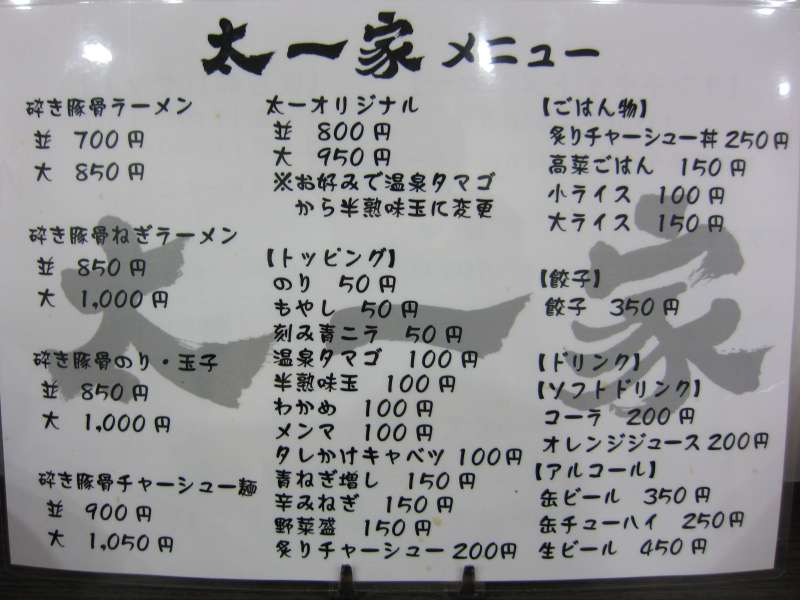 太一家 メニュー
砕き豚骨ラーメン
並 700円
大 850円
砕き豚骨ねぎラーメン
並 850円
大 1,000円
砕き豚骨のり・玉子
並 850円
大 1,000円
砕き豚骨チャーシュー麺
並 900円
大 1,050円
太一オリジナル
並 800円
大 950円
※お好みで温泉タマゴ
から半熟味玉に変更
【トッピング】
のり 50円
もやし 50円
刻み青ニラ 50円
温泉タマゴ 100円
半熟味玉 100円
わかめ 100円
メンマ 100円
タレかけキャベツ 100円
青ねぎ増し 150円
辛みねぎ 150円
野菜盛 150円
炙りチャーシュー 200円
【ごはん物】
炙りチャーシュー丼 250円
高菜ごはん 150円
小ライス 100円
大ライス 150円
【餃子】
餃子 350円
【ドリンク】
【ソフトドリンク】
コーラ 200円
オレンジジュース 200円
【アルコール】
缶ビール 350円
缶チューハイ 250円
生ビール 450円
太一家